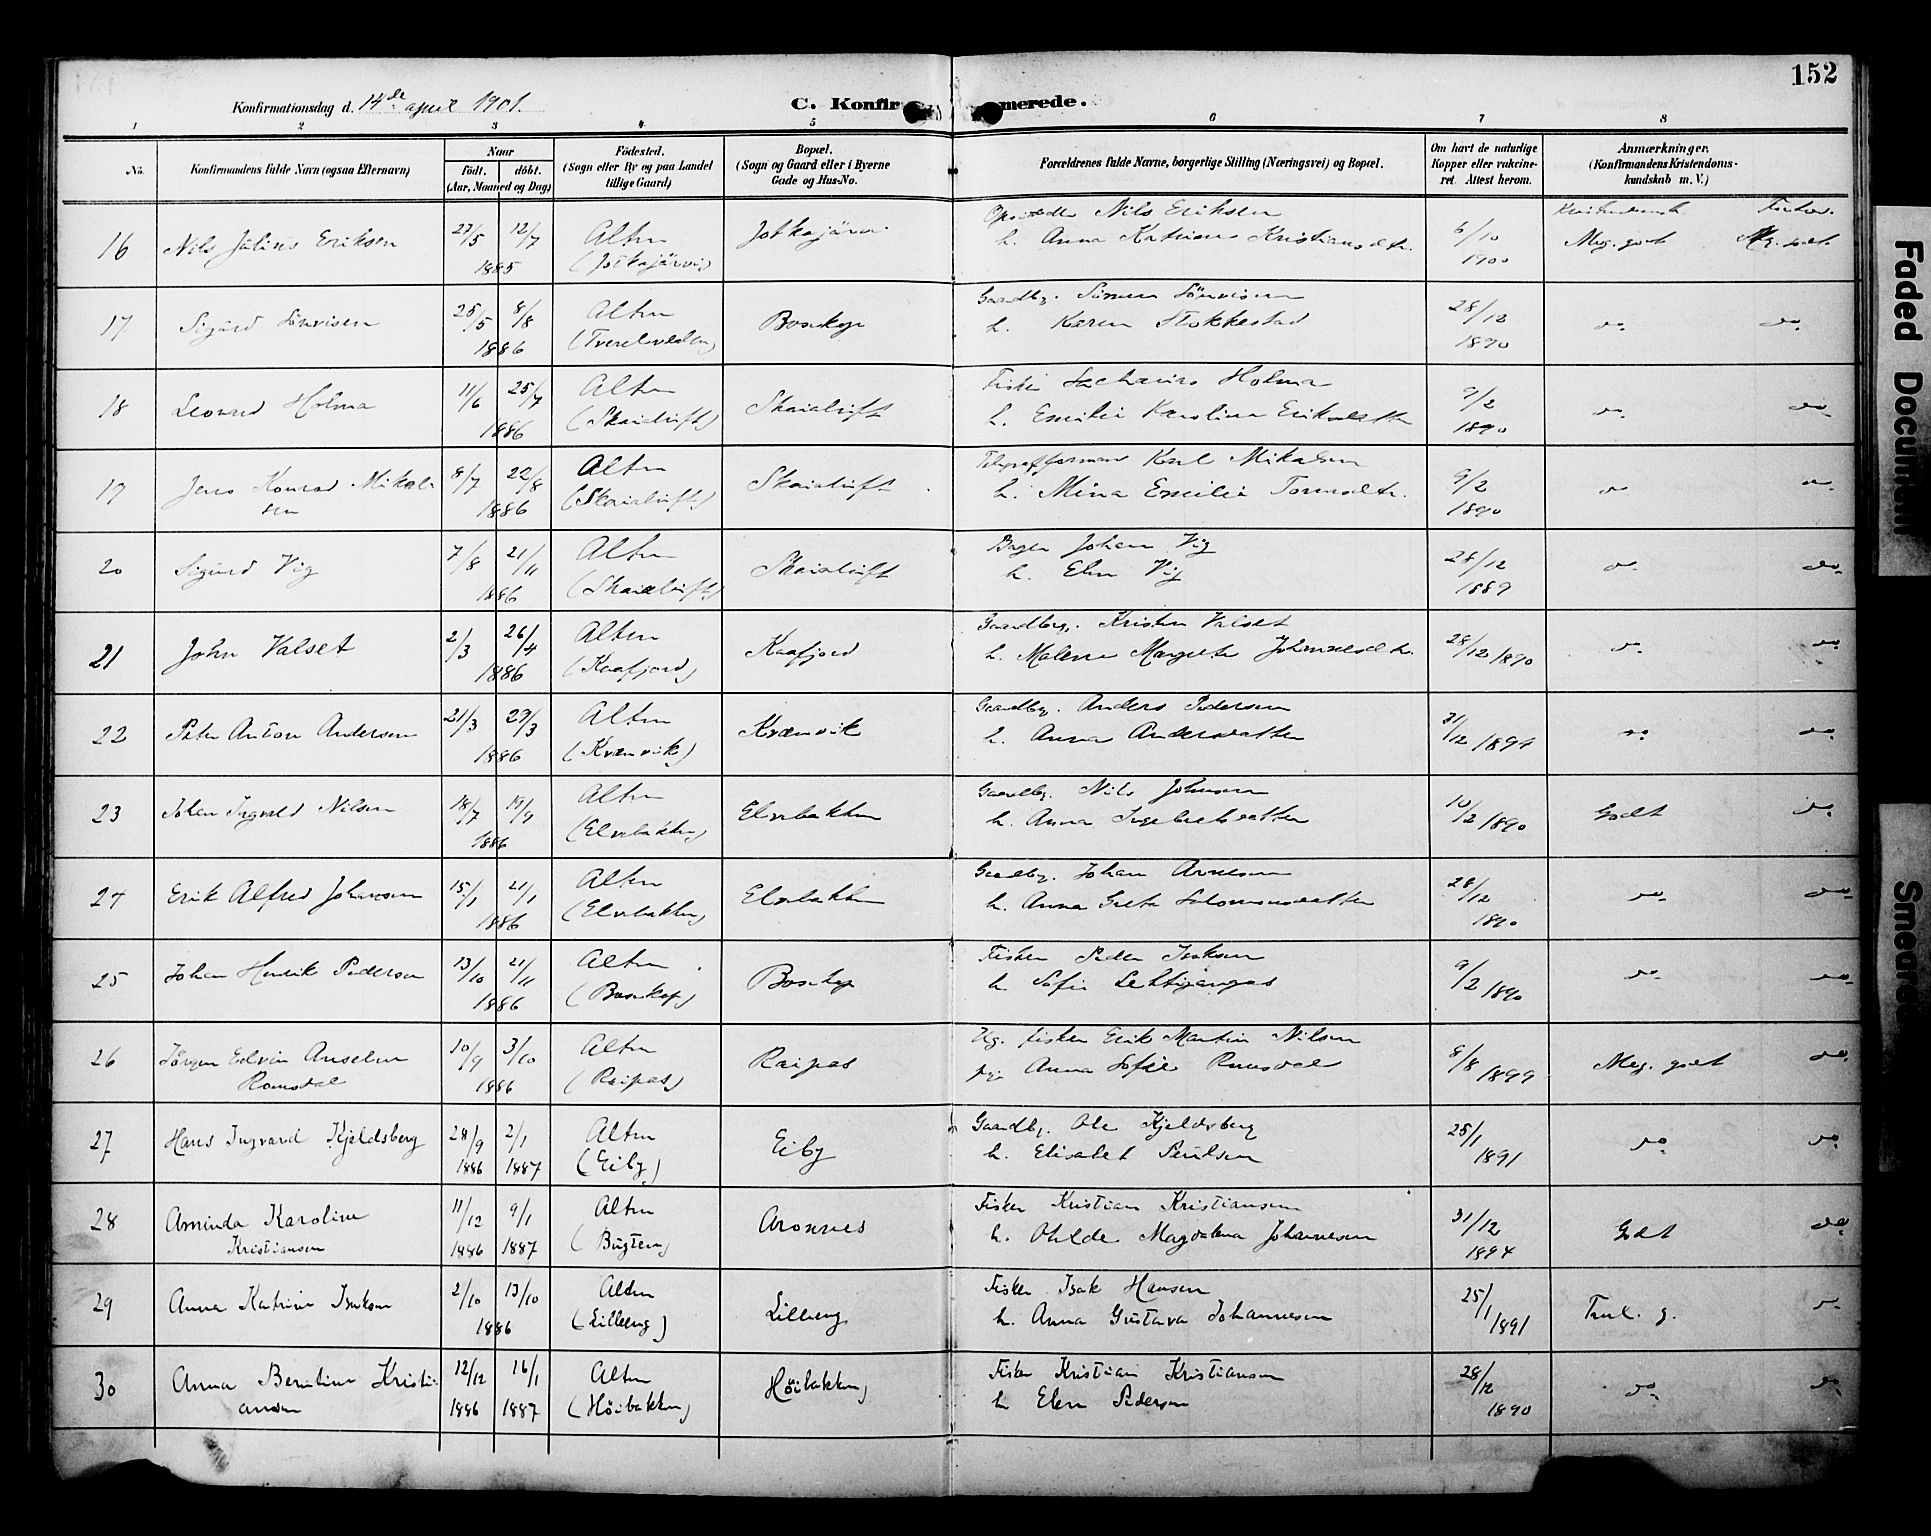 152
Konfirmationsdag d. 14de april 1901.
C. Konfirmerede.
1 2 3 4 5 6 7 8
No.
Konfirmandens fulde Navn (ogsaa Efternavn)
Naar
födt. döbt.
(Aar, Maaned og Dag)
Födested.
(Sogn eller By og paa Landet
tillige Gaard)
Bopæl.
(Sogn og Gaard eller i Byerne
Gade og Hus-No.
Forældrenes fulde Navne, borgerlige Stilling (Næringsvei) og Bopæl.
Om havt de naturlige
Kopper eller vakcine-
ret. Attest herom.
Anmærkninger.
(Konfirmandens Kristendoms-
kundskab m. V.)
16 Nils Julius Eriksen 27/5 12/7 1885 Alten (Jotkajärvi) Jotkajärvi
Nils Eriksen
h. Anna Katrina Kristiansdtr. 6/10 1900 Meg. godt Mg. godt
17 Sigurd Sönvisen 25/5 8/8 1886 Alten Bosekop
Gaardbr. Simen Sönvisen
h. Karen Stokkestad 28/12 1890 do. do.
18 Leonard Holma 11/6 25/7 1886 Alten (Skaialuft) Skaialuft
Fisker Sacharias Holma
h. Emilie Karolina Eriksdatter 9/2 1890 do. do.
19 Jens Konrad Mikal-
sen 8/7 22/8 1886 Alten (Skaialuft) Skaialuft
Telegrafformand Karl Mikalsen
h. Mina Emilie 9/2 1890 do. do.
20 Sigurd Vig 7/8 21/11 1886 Alten (Skaialuft) Skaialuft
Bager Johan Vig
h. Elen Vig 28/12 1889 do. do.
21 John Valset 2/3 26/4 1886 Alten (Kaafjord) Kaafjord
Gaardbrg. Kristen Valset
h. Malene Margrete Johannesdtr. 28/12 1890 do. do.
22 Peter Anton Andersen 21/3 29/3 1886 Alten (Kvænvik) Kvænvik
Gaardbg. Anders Pedersen
h. Anna Andersdatter 31/12 1894 do. do.
23 Johan Ingvald Nilsen 18/7 19/9 1886 Alten (Elvebakken) Elvebakken
Gaardbg. Nils Johnsen
h. Anna Ingebretsdatter 10/2 1890 Godt do.
24 Erik Alfred Johansen 15/1 21/1 1886 Alten (Elvebakken) Elvebakken
Gaardbg. Johan Arnesen
h. Anna Greta Salomonsdatter 28/12 1890 do. do.
25 Johan Henrik Pedersen 13/10 21/11 1886 Alten (Bosekop) Bosekop
Fisker Peder Isaksen
h. Sofie 9/2 1890 do. do.
26 Jörgen Edvin Anselm
Romsdal 10/9 3/10 1886 Alten (Raipas) Raipas
Ug. fisker Erik Martin Nilsen
pige Anna Sofie Romsdal 8/8 1899 Meg. godt do.
27 Hans Ingvard Kjeldsberg 28/9 1886 2/1 1887 Alten (Eiby) Eiby
Gaardbg. Ole Kjeldsberg
h. Elisabet Paulsen 25/1 1891 do. do.
28 Aminda Karoline
Kristiansen 11/12 1886 9/1 1887 Alten (Bugten) Aronnes
Fisker Kristian Kristiansen
h. Magdalena Johannesen 31/12 1894 Godt do.
29 Anna Katrine Isaksen 2/10 13/10 1886 Alten (Lilleeng) Lilleeng
Fisker Isak Hansen
h. Anna Gustava Johannesen 25/1 1891 Taal. g. do.
30 Anna Berntine Kristi-
ansen 12/12 1886 16/1 1887 Alten (Höibakken) Höibakken
Fisker Kristian Kristiansen
h. Elen Pedersen 28/12 1890 do. do.
Faded Document
Smeared